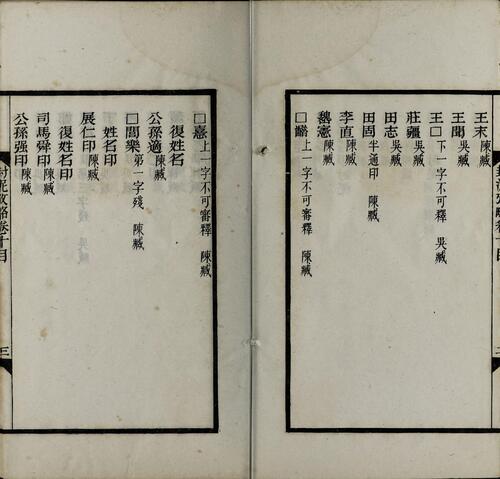 王末陳臧
王聞吳臧
王□下一字不可審釋 吳臧
莊疆吳臧
田志吳臧
田固半通印 陳臧
李直陳臧
魏憲陳臧
上一字不可審釋 陳臧
□憙上一字不可審釋 陳臧
復姓名
公孫適陳臧
□閭樂第一字殘 陳臧
姓名印
展仁印陳臧
復姓名印
司馬舜印陳臧
公孫强印陳臧
封泥攷略卷十目
三